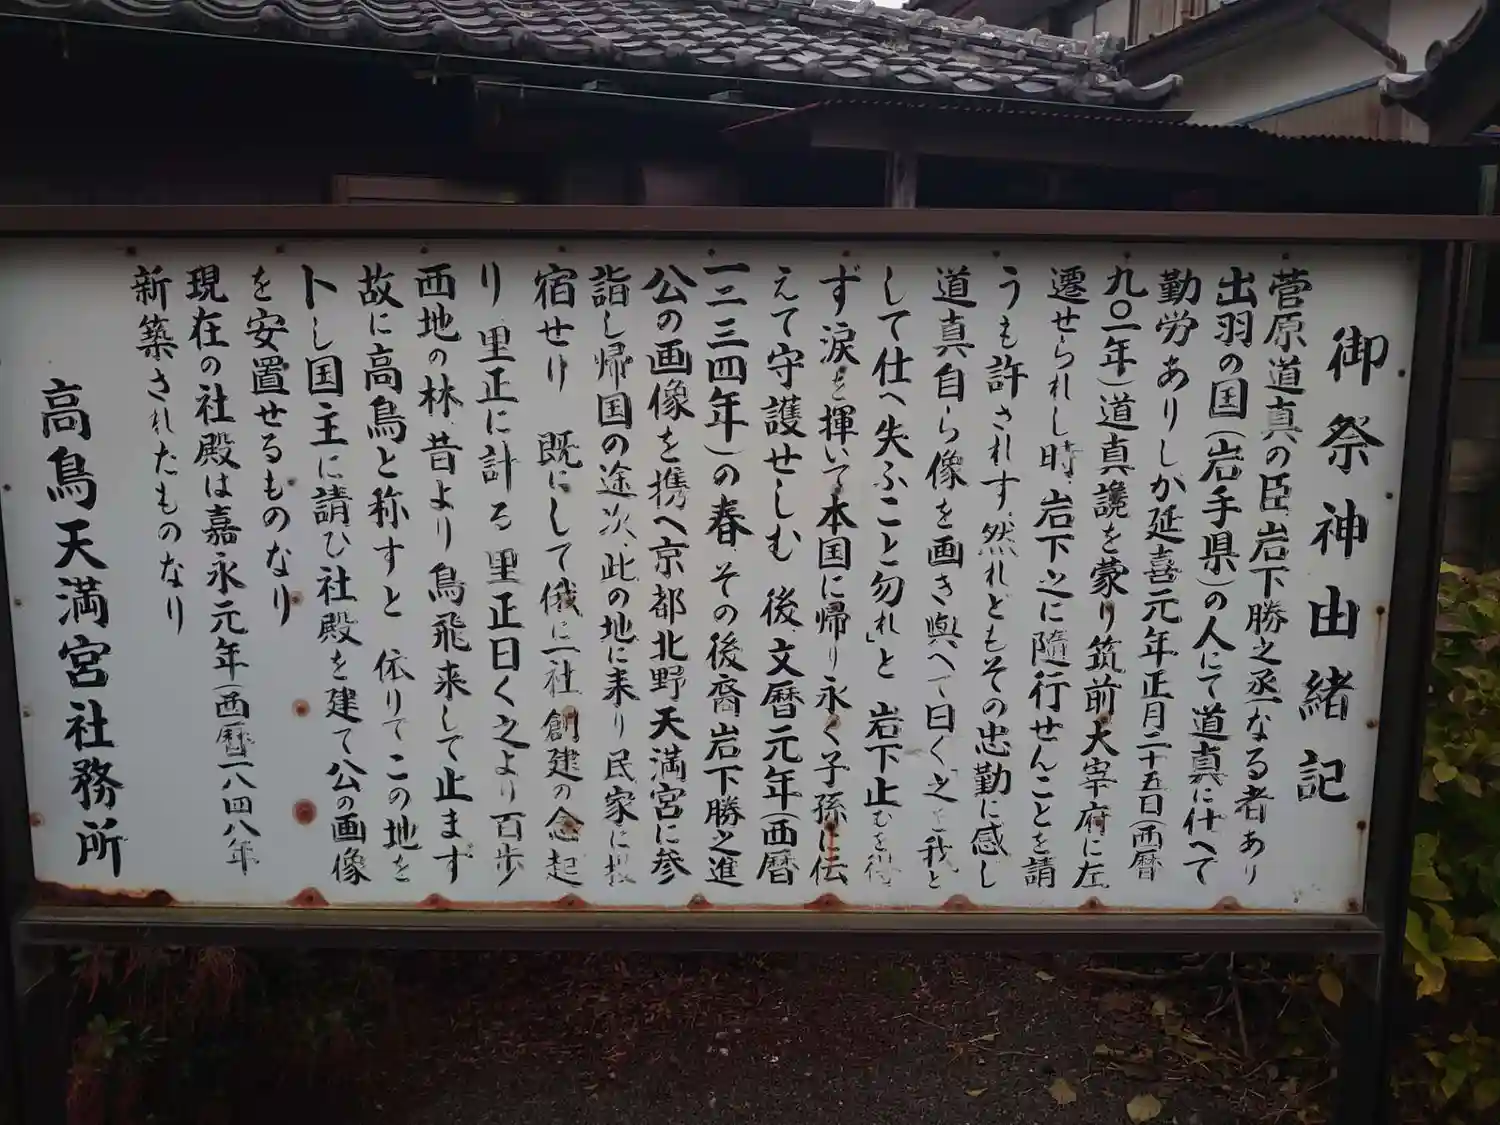 御祭神由緒記
菅原道真の臣、岩下勝之丞なる者あり
出羽の国(岩手県)の人にて道真に仕へて
勤労ありしか延喜元年正月二十五日(西暦
九〇一年)道真讒を蒙り筑前大宰府に左
遷せられし時、岩下之に隨行せんことを請
うも許されす、然れどもその忠勤に感じ
道真自ら像を画き與へて曰く「之を我と
して仕へ失ふこと勿れ」と 岩下止むを得
ず涙を揮いて本国に帰り永く子孫に伝
えて守護せしむ 後、文暦元年(西暦
一二三四年)の春、その後裔岩下勝之進
公の画像を携へ京都北野天満宮に参
詣し帰国の途次、此の地に来り民家に投
宿せり 既にして俄に一社創建の念起
り 里正に計る 里正曰く之より百歩
西地の林、昔より鳥飛来して止まず
故に高鳥と称すと 依りてこの地を
卜し国主に請ひ社殿を建て公の画像
を安置せるものなり
現在の社殿は嘉永元年(西暦一八四八年
新築されたものなり
高鳥天満宮社務所